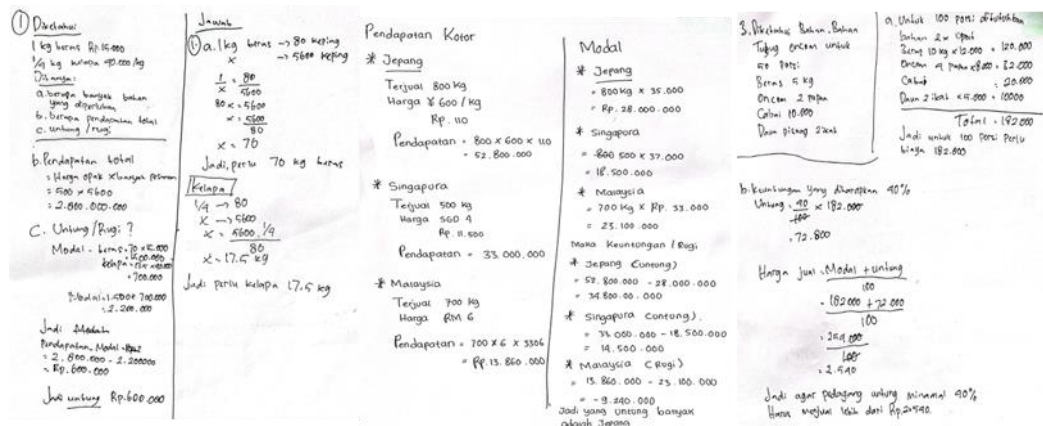 ① Diketahui
1 kg beras Rp.15.000
1/4 kg kelapa 40.000/kg
Ditanya:
a. berapa banyak bahan
yang diperlukan
b. berapa pendapatan total
c. untung/rugi
b. Pendapatan total
= Harga opak x banyak pesanan
= 500 x 5600
= 2.800.000.000
C. Untung/Rugi?
Modal = beras = 70 x 15.000
kelapa =
= 700.000
Modal = 1.500 + 700.000
= 2.200.000
Jadi Modal
Pendapatan - Modal
= 2.800.000 - 2.200000
= Rp.600.000
Jadi untung Rp.600.000
Jawab
① a. 1 kg beras → 80 keping
x → 5600 keping
1/x = 80/5600
80x = 5600
x = 5600/80
x = 70
Jadi, perlu 70 kg beras
Kelapa
1/4 → 80
x → 5600
x = 5600.1/4
80
x = 17.5 kg
Jadi perlu kelapa 17.5 kg
Pendapatan Kotor
* Jepang
Terjual 800 kg
Harga ¥ 600/kg
Rp. 110
Pendapatan = 800 x 600 x 110
= 52.800.000
* Singapura
Terjual 500 kg
Harga SGD 4
Rp. 11.500
Pendapatan = 33.000.000
* Malaysia
Terjual 700 kg
Harga RM 6
Pendapatan = 700 x 6 x 3306
= Rp.13.860.000
Modal
* Jepang
= 800 kg x 35.000
= Rp. 28.000.000
* Singapora
= 500 x 37.000
= 18.500.000
* Malaysia
= 700 kg x Rp. 33.000
= 23.100.000
Maka Keuntungan / Rugi
* Jepang (untong)
= 52.800.000 - 28.000.000
= 34.800.00.000
* Singapora (untong)
= 33.000.000 - 18.500.000
= 14.500.000
* Malaysia (Rugi)
= 13.860.000 - 23.100.000
= -9.240.000
Jadi yang untung banyak
adalah Jepang
3. Diketahui Bahan-Bahan
Tutug oncom untuk
50 Porsi
Beras 5 kg
Oncom 2 papan
Cabai 10.000
Daun pisang 2 ikat
a. Untuk 100 porsi dibutuhkan
bahan 2x lipat
Beras 10 kg x 12.000 = 120.000
Oncom 4 papan x 8000 = 32.000
Cabai = 20.000
Daun 2 ikat x 5.000 = 10000
Total = 182.000
Jadi untuk 100 porsi perlu
biaya 182.000
b. keuntungan yang diharapkan 40%
Untung = 40/100 x 182.000
= 72.800
Harga jual = Modal + untung
100
= 182000 + 72.000
100
= 254.000
100
= 2.540
Jadi agar pedagang untung minimal 40%
Harus menjual lebih dari Rp.2.540.